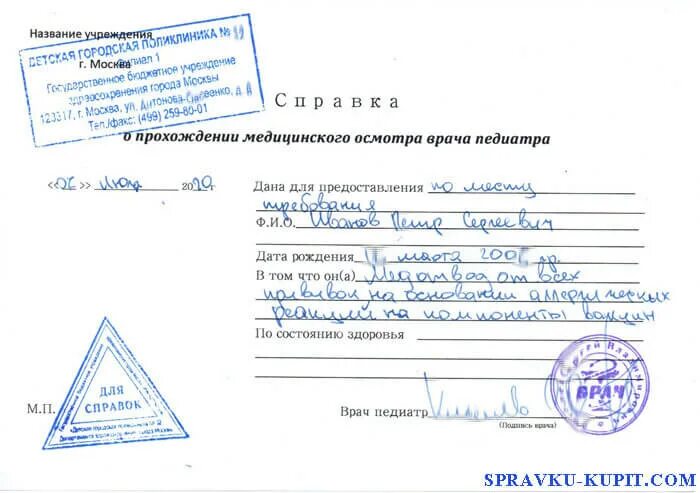 Название учреждения
ДЕТСКАЯ ГОРОДСКАЯ ПОЛИКЛИНИКА №
г. Москва
Филиал 1
Государственное бюджетное учреждение
здравоохранения города Москвы
123317, г. Москва, ул. Антонова-Овсеенко, д.
Тел./факс: (499) 259-80-01
Справка
о прохождении медицинского осмотра врача педиатра
« » 20 г.
Дана для предоставления по месту
требования
Ф.И.О. Иванов Петр Сергеевич
Дата рождения марта 200 гр.
В том что он(а) Медотвод от всех
прививок на основании аллергических
реакций на компоненты вакцин
По состоянию здоровья
ДЛЯ
СПРАВОК
М.П.
Врач педиатр
(Подпись врача)
Сергей Владимирович
ВРАЧ
SPRAVKU-KUPIT.COM